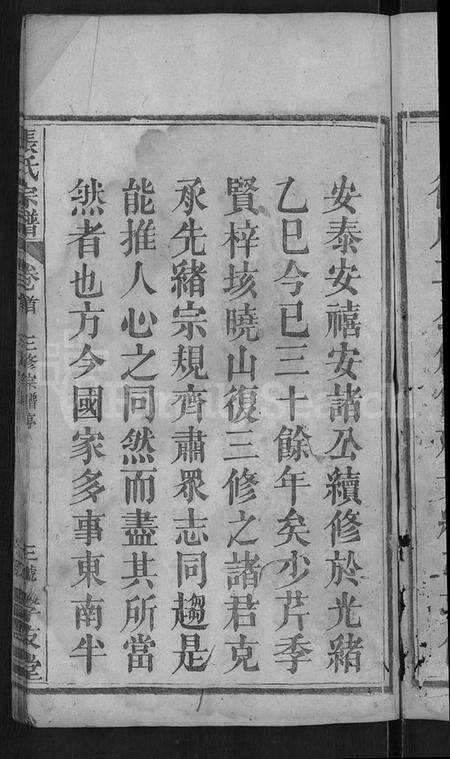 安泰安禧安諸公續修於光緒
乙巳今已三十餘年矣少芹季
賢梓垓曉山復三修之諸君克
承先緒宗規齊肅眾志同趨是
能推人心之同然而盡其所當
然者也方今國家多事東南半
張氏宗譜 卷首 三修宗譜序
孝友堂
FamilySearch